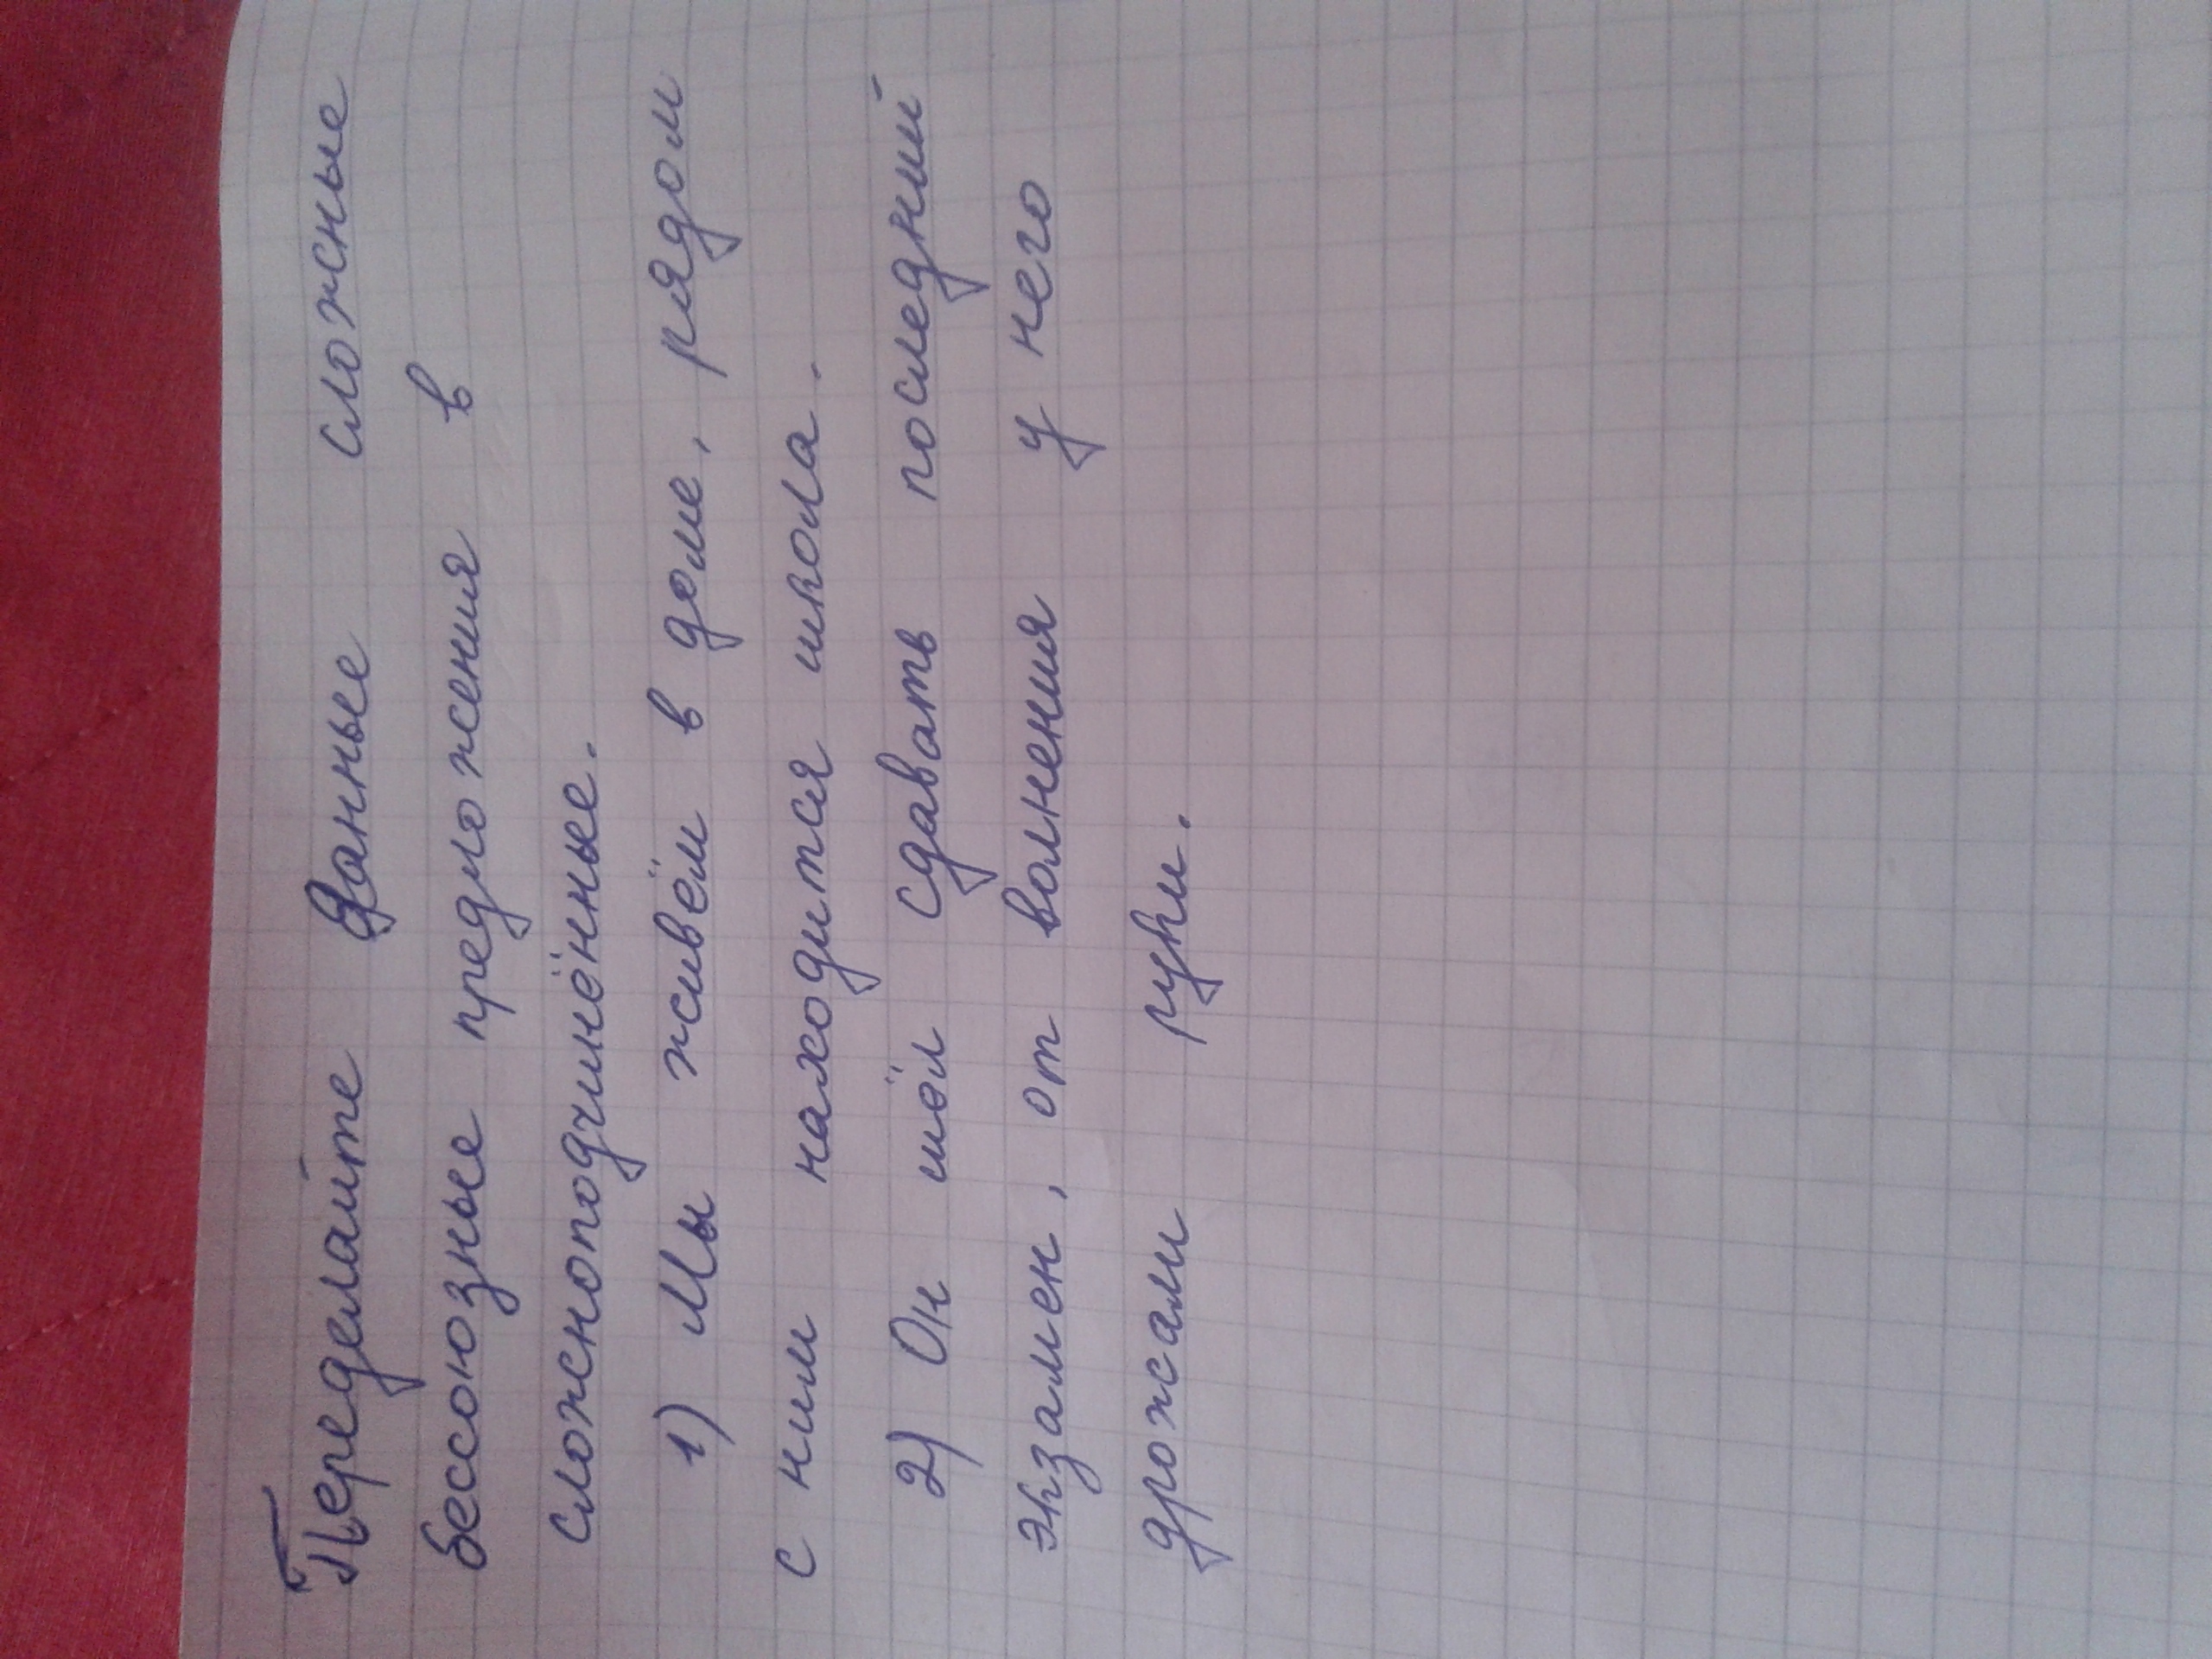 Переделайте данные сложные
бессоюзные предложения в
сложноподчинённые.
1) Мы живём в доме, рядом
с ним находится школа.
2) Он шёл сдавать последний
экзамен, от волнения у него
дрожали руки.